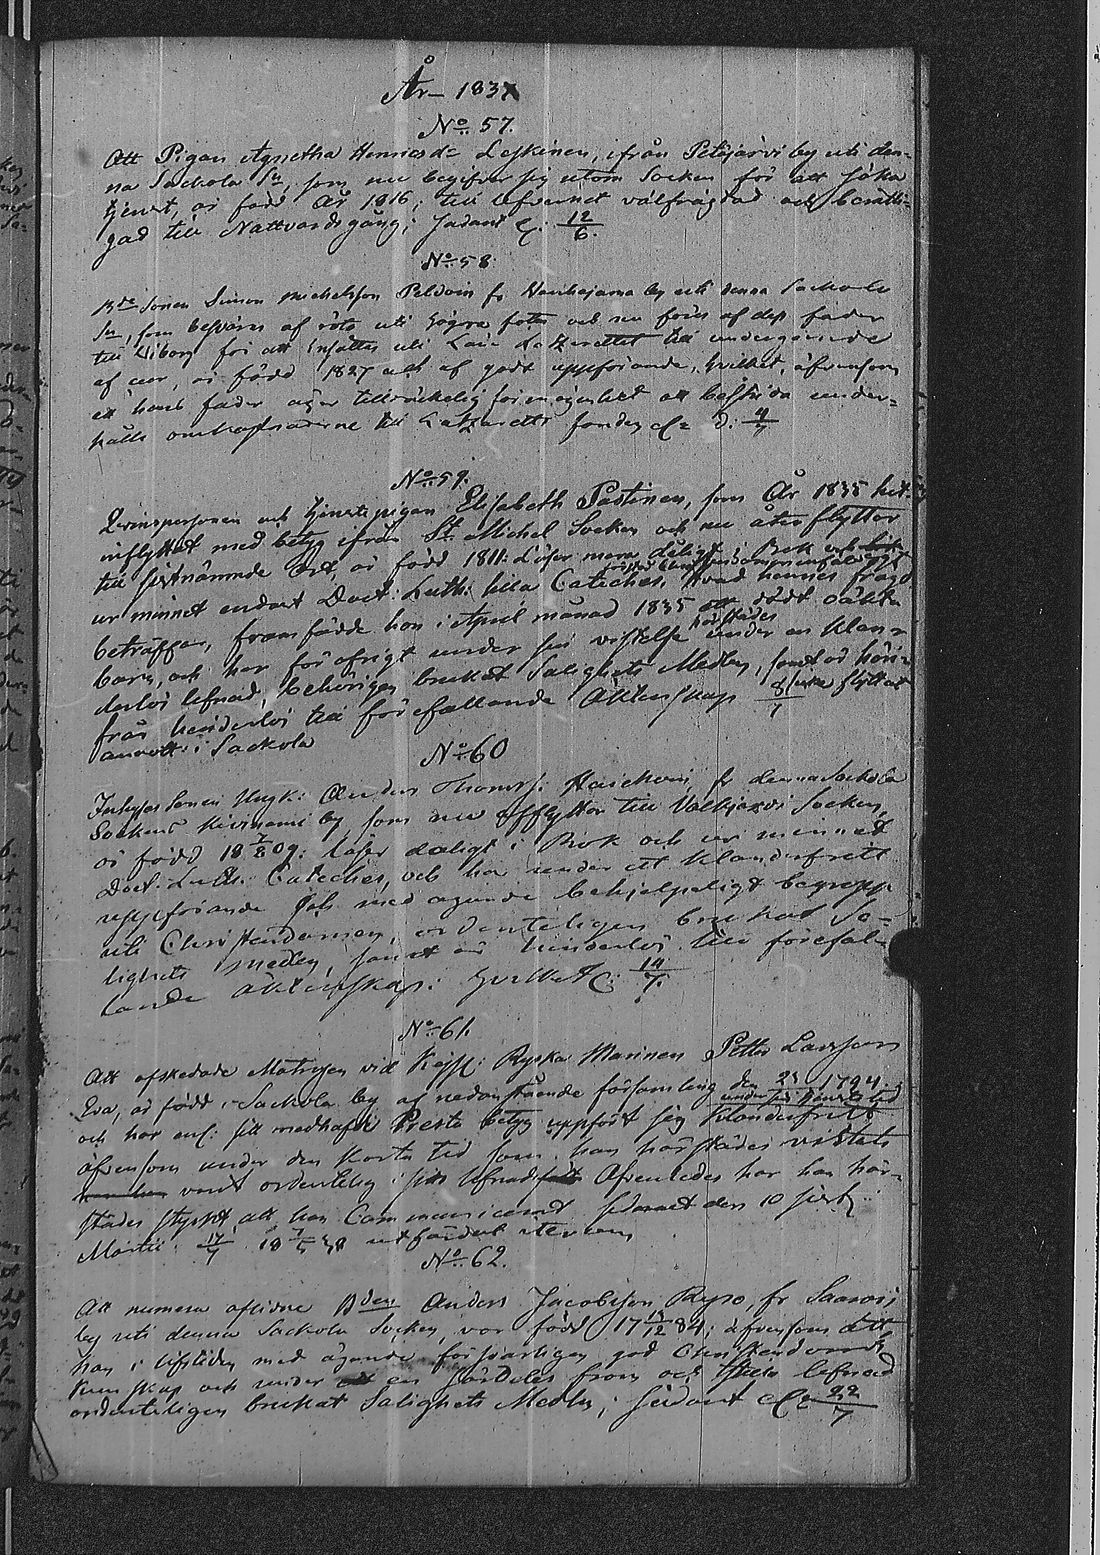 År 1837
No. 57.
Att Pigan Agnetha Henricsdr Leskinen, ifrån Petäjärvi by uti den-
na Sackola Sn, som nu begifver sig utom Socken för att söka
tjenst, är född År 1816; till lefvernet välfrägdad och berätti-
gad till Nattvardsgång; sådant &c. 12/6.
No. 58.
Bde Sonen Simon Michelsson Peldoin fr by uti denna Sackola
Sn, som besväras af röta uti högra foten och nu föres af dess fader
till Wiborg för att insättas uti Läns Lazarettet till undergående
af cur, är född 1827 och af godt uppförande, hvilket, äfvensom
att hans fader äger tillräckelig förmögenhet att bestrida under-
hålls omkostnaderne till Lazaretts fonden &c d: 4/7
No. 59.
Qvinspersonen och tjenstepigan Elisabeth Pastinen, som År 1835 hit
inflyttat med betyg ifrån St Michel Socken och nu återflyttar
till sistnämnde ort, är född 1811: Läser mera dåligt i Bok
ur minnet endast Doct: Luth: lilla Cateches, hvad hennes frägd
beträffar, framfödde hon i April månad 1835 ett dödt oäkta
barn, och har för öfrigt under sin vistelse härstädes under en klan-
derlös lefnad, behörigen brukat Salighets Medlen, samt är
från hinderlös till förefallande Äktenskap 8/7
annott i Sackola
No. 60
Inhyses Sonen Ungk: Anders Thomss: Haickoin fr denna Sackola
Sockens Kiviniemi by som nu afflyttar till Valkjärvi Socken,
är född 18 7/8 09: läser dåligt i Bok och ur minnet
Doct: Luth: Cateches, och har under ett klanderfritt
uppförande och med ägande behjelpeligt begrepp
uti Christendomen, ordenteligen brukat Sa-
lighets medlen, samt är hinderlös till förefal-
lande äktenskap: hvilket &c: 14/7.
No. 61.
Att afskedade Matrosen vid Kejs: Ryska Marinen Petter Larsson
Eva, är född i Sackola by af nedanstående församling den 23 1794
och har enl: sitt medhafde Preste betyg uppfört sig under sin tjenstetid klanderfritt
äfvensom under den korta tid som han härstädes vistats
varit ordentelig i sin lefnad. Äfvenledes har han här-
städes styrkt att han Communicerat sednast den 10 sistl:
Martii. 17/7 utfärdat
No. 62.
Att numera aflidne Bden Anders Jacobsson Ryso, fr Saarois
by uti denna Sackola Socken, var född 17 1/12 84; äfvensom att
han i lifstiden med ägande försvarligen god Christendoms
kunskap och under en särdeles from och stilla lefnad
ordenteligen brukat Salighets Medlen; sådant &c 22/7